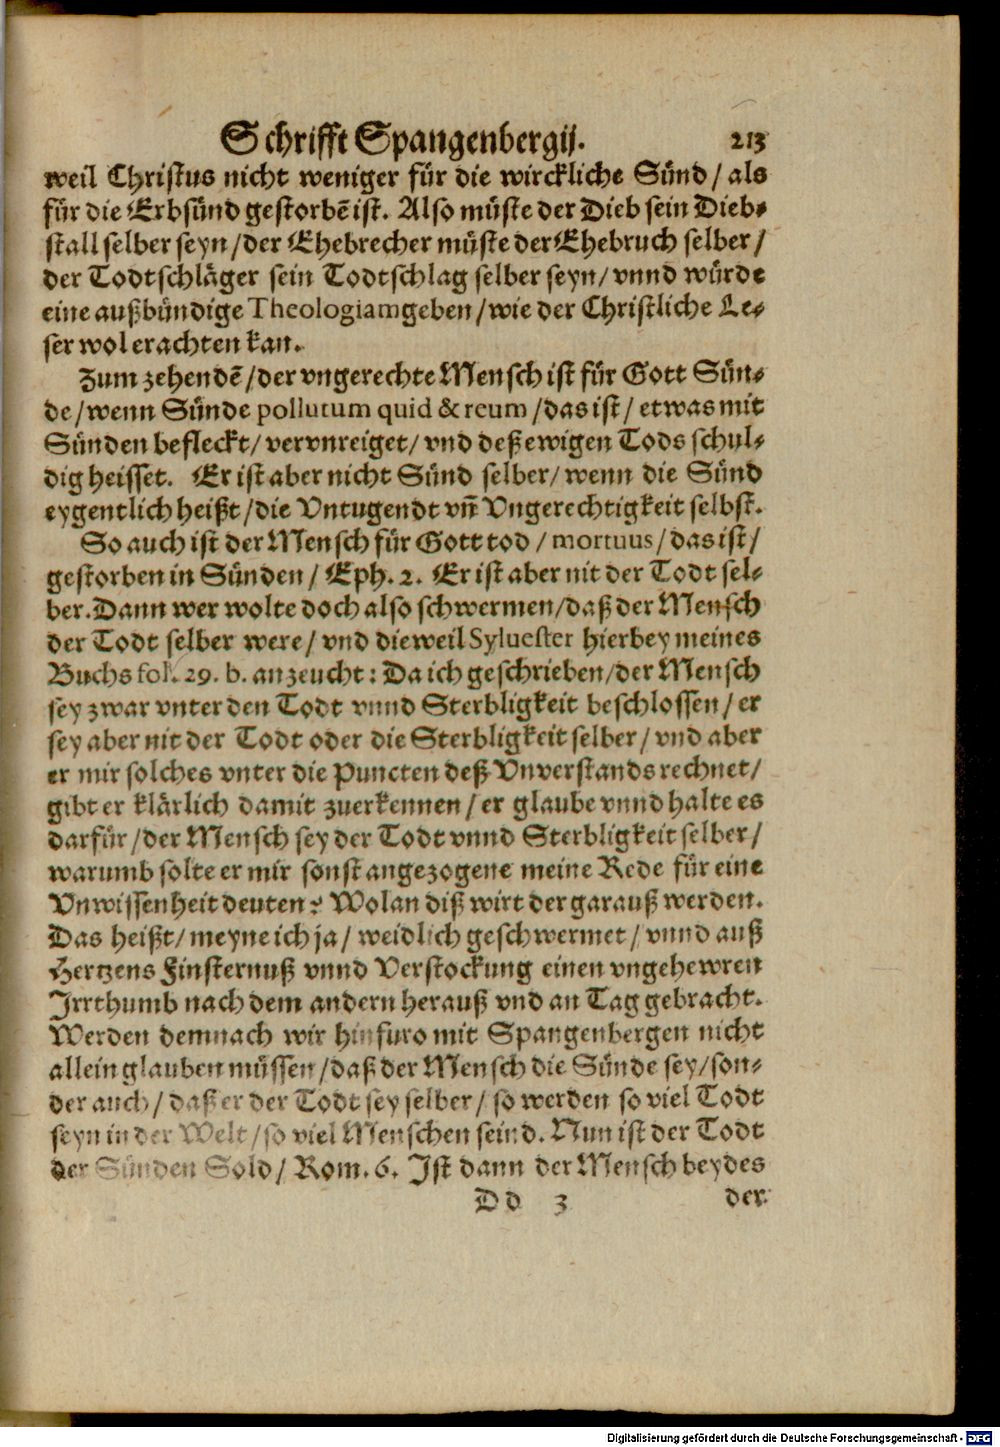 Schrifft Spangenbergij. 213
weil Christus nicht weniger für die wirckliche Sünd / als
für die Erbsünd gestorbē ist. Also müste der Dieb sein Dieb-
stall selber seyn / der Ehebrecher müste der Ehebruch selber /
der Todtschläger sein Todtschlag selber seyn / vnnd würde
eine außbündige Theologiam geben / wie der Christliche Le-
ser wol erachten kan.
Zum zehendē / der vngerechte Mensch ist für Gott Sün-
de / wenn Sünde pollutum quid & reum / das ist / etwas mit
Sünden befleckt / vervnreiget / vnd deß ewigen Tods schul-
dig heisset. Er ist aber nicht Sünd selber / wenn die Sünd
eygentlich heißt / die Vntugendt vn̄ Vngerechtigkeit selbst.
So auch ist der Mensch für Gott tod / mortuus / das ist /
gestorben in Sünden / Eph. 2. Er ist aber nit der Todt sel-
ber. Dann wer wolte doch also schwermen / daß der Mensch
der Todt selber were / vnd dieweil Syluester hierbey meines
Buchs fol. 29. b. anzeucht : Da ich geschrieben / der Mensch
sey zwar vnter den Todt vnnd Sterbligkeit beschlossen / er
sey aber nit der Todt oder die Sterbligkeit selber / vnd aber
er mir solches vnter die Puncten deß Vnverstands rechnet /
gibt er klärlich damit zuerkennen / er glaube vnnd halte es
darfür / der Mensch sey der Todt vnnd Sterbligkeit selber /
warumb solte er mir sonst angezogene meine Rede für eine
Vnwissenheit deuten? Wolan diß wirt der garauß werden.
Das heißt / meyne ich ja / weidlich geschwermet / vnnd auß
Hertzens Finsternuß vnnd Verstockung einen vngehewren
Irrthumb nach dem andern herauß vnd an Tag gebracht.
Werden demnach wir hinfuro mit Spangenbergen nicht
allein glauben müssen / daß der Mensch die Sünde sey / son-
der auch / daß er der Todt sey selber / so werden so viel Todt
seyn in der Welt / so viel Menschen seind. Nun ist der Todt
der Sünden Sold / Rom. 6. Ist dann der Mensch beydes
Dd 3 der
Digitalisierung gefördert durch die Deutsche Forschungsgemeinschaft - DFG